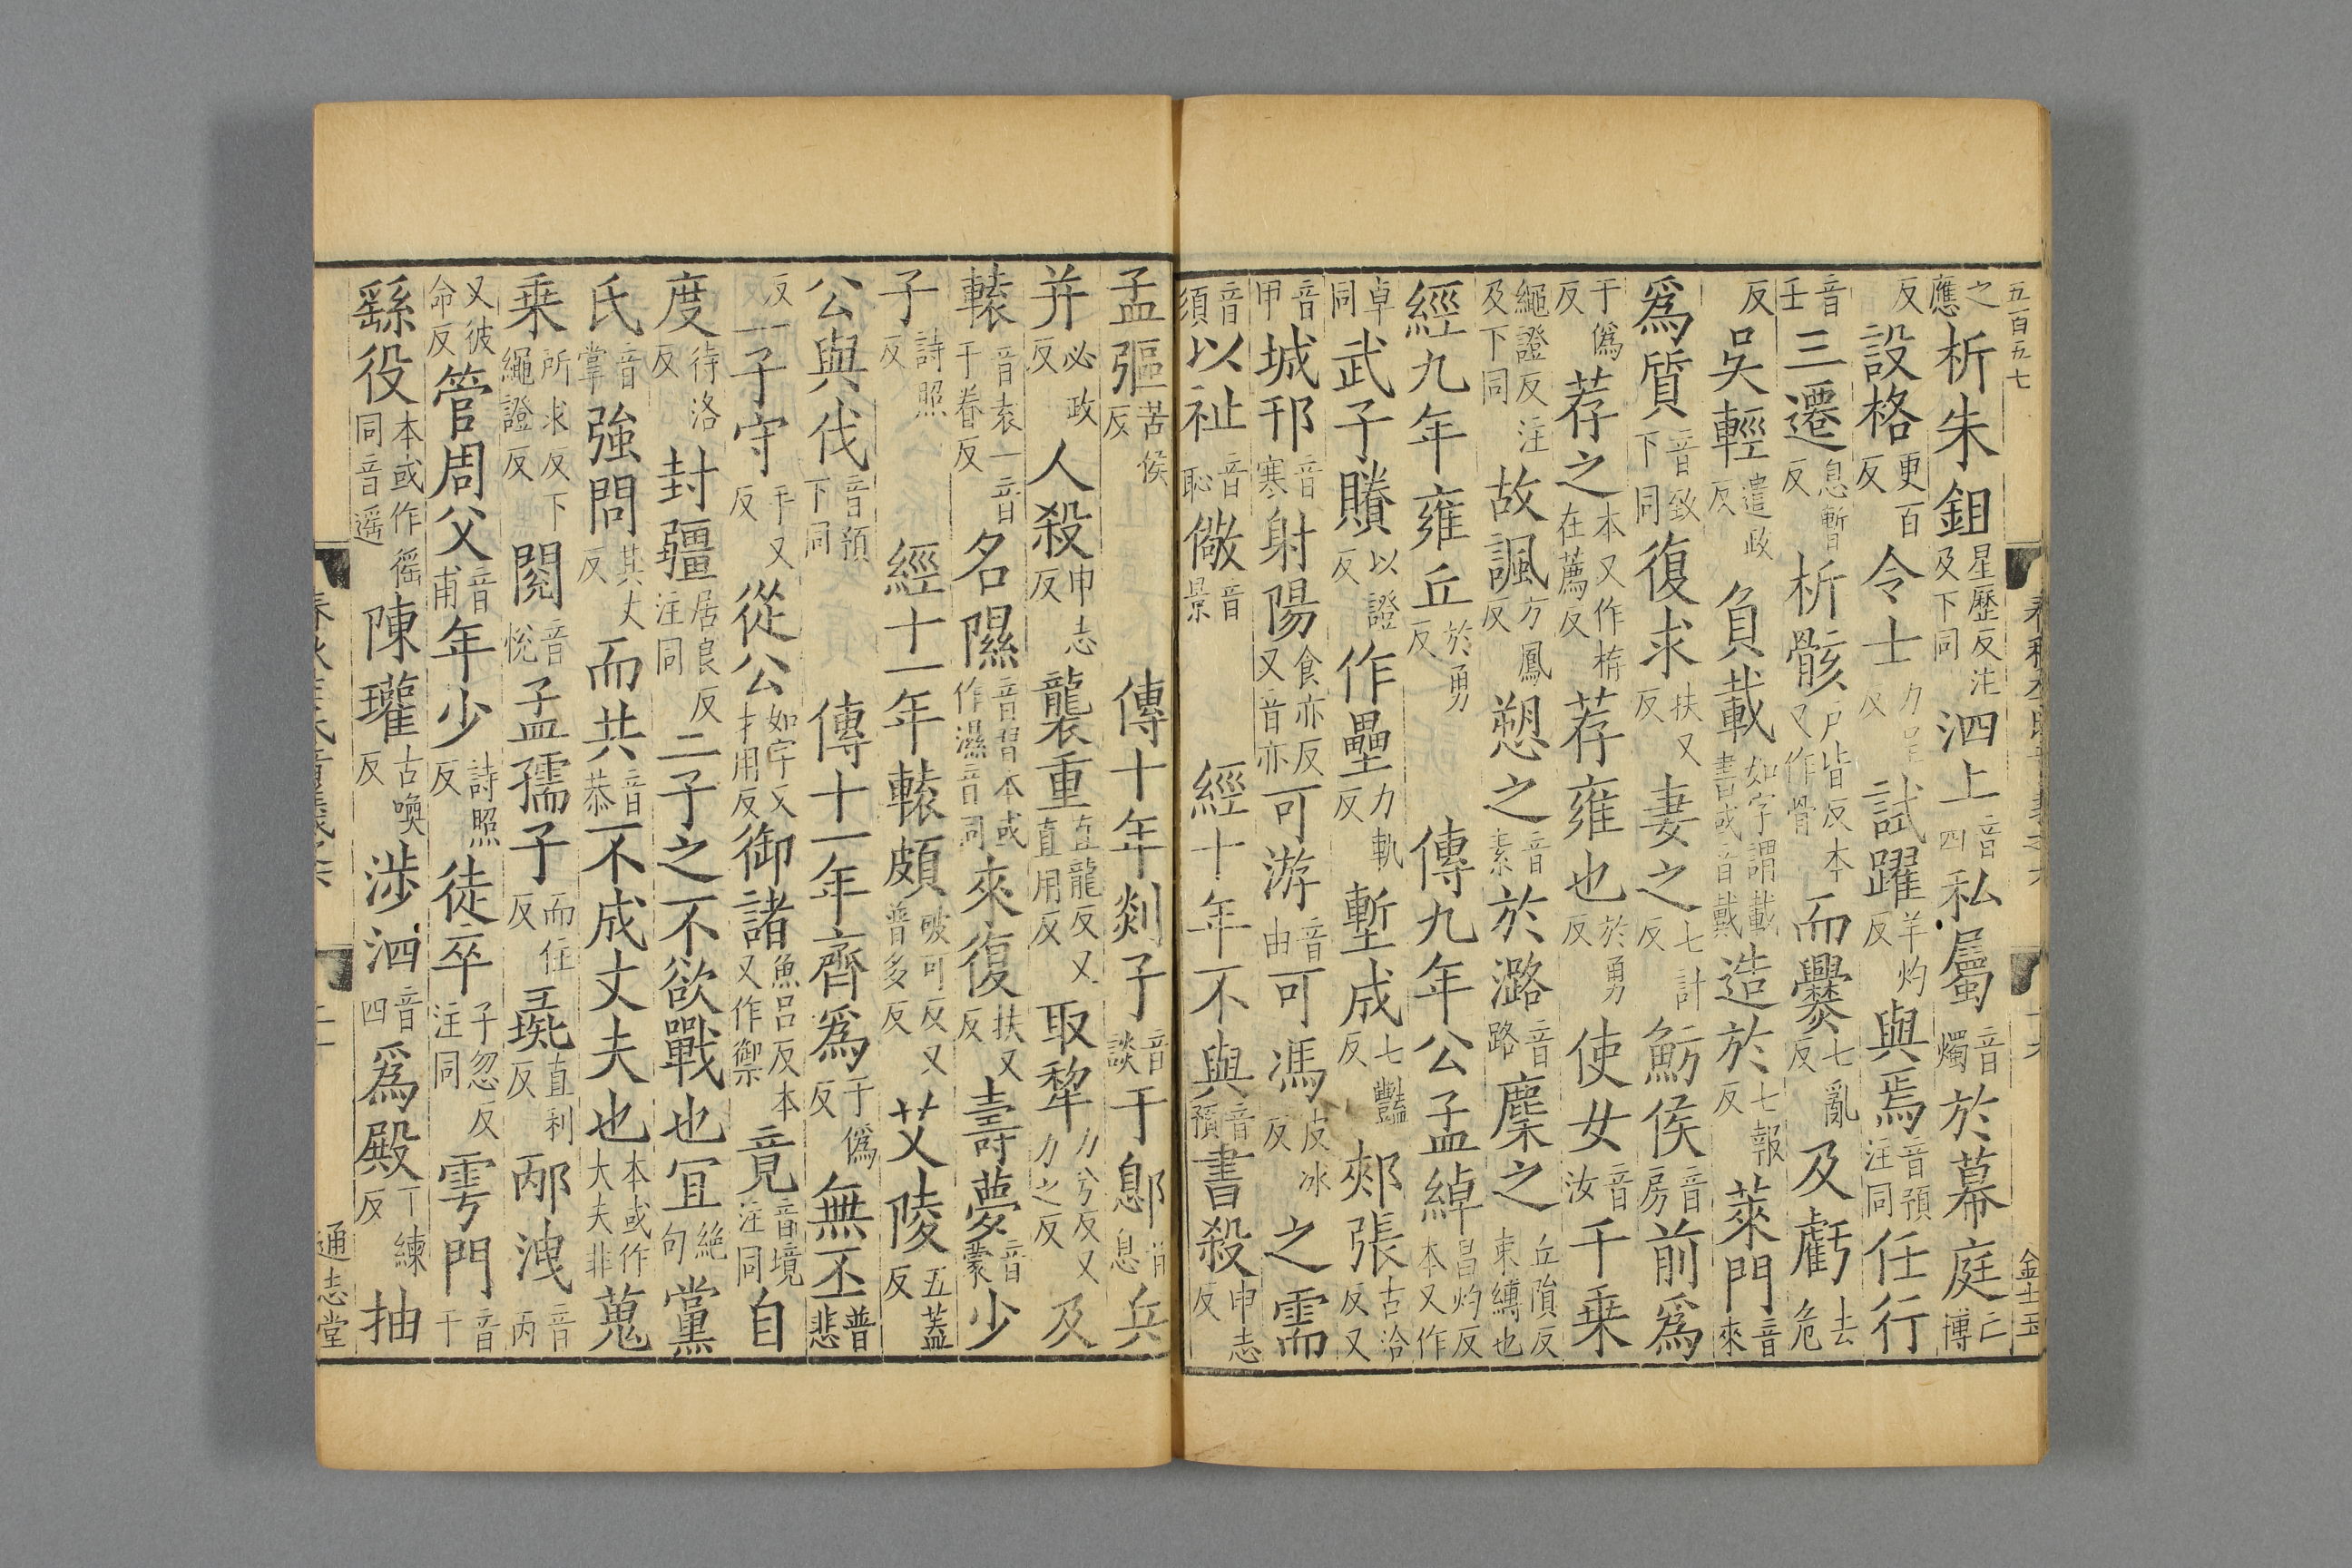 五百五七
春秋左氏音義之六 十六 金士玉
之應析朱鉏星歷反注及下同泗上音四私屬音燭於幕庭亡博
反設格更百反令士力呈反試躍羊灼反與焉音預注同任行
音壬三遷息暫反析骸戶皆反本又作骨而爨七亂反及虧去危
反吳輕遣政反負載如字謂載書或音戴造於七報反萊門音來
爲質音致下同復求扶又反妻之七計反魴侯音房前爲
于僞反荐之本又作栫在薦反荐雍也於勇反使女音汝千乗
繩證反注及下同故諷方鳳反愬之音素於潞音路麇之丘隕反束縛也
經九年雍丘於勇反傳九年公孟綽昌灼反本又作
卓同武子賸以證反作壘力軌反塹成七豔反郟張古洽反又
音甲城邗音寒射陽食亦反又音亦可游音由可馮皮冰反之需
音須以祉音恥儆音景經十年不與音預書殺申志反
孟彄苦侯反傳十年郯子音談于鄎音息兵
并必政反人殺申志反襲重直龍反又直用反取犂力兮反又力之反及
轅音袁一音于眷反名隰音習本或作濕音同來復扶又反壽夢音蒙少
子詩照反經十一年轅頗破可反又普多反艾陵五蓋反
公與伐音預下同傳十一年齊爲于僞反無丕普悲
反一子守手又反從公如字又才用反御諸魚呂反本又作禦竟音境注同自
度待洛反封疆居良反注同二子之不欲戰也冝絕句黨
氏音掌強問其丈反而共音恭不成丈夫也本或作大夫非蒐
乗所求反下繩證反閱音悅孟孺子而住反彘直利反邴洩音丙
又彼命反管周父音甫年少詩照反徒卒子忽反注同雩門音于
繇役本或作徭同音遥陳瓘古喚反涉泗音四爲殿丁練反抽
春秋左氏音義之六
通志堂